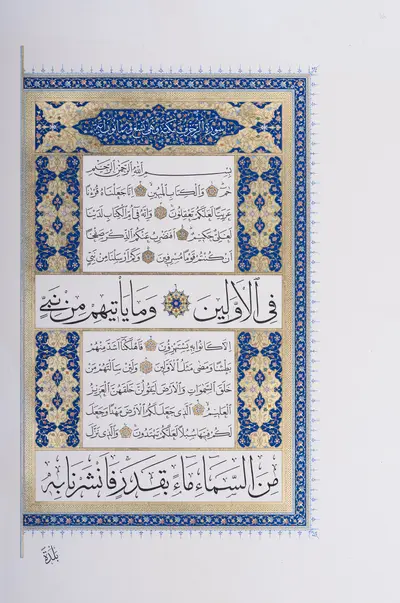 سورة الزخرف مكية وهي تسع وثمانون آية
بِسْمِ اللّٰهِ الرَّحْمٰنِ الرَّحِيمِ
حٰمٓ وَالْكِتَابِ الْمُبِينِ اِنَّا جَعَلْنَاهُ قُرْءٰنًا
عَرَبِيًّا لَعَلَّكُمْ تَعْقِلُونَ وَاِنَّهُ فِى اُمِّ الْكِتَابِ لَدَيْنَا
لَعَلِىٌّ حَكِيمٌ اَفَنَضْرِبُ عَنْكُمُ الذِّكْرَ صَفْحًا
اَنْ كُنْتُمْ قَوْمًا مُسْرِفِينَ وَكَمْ اَرْسَلْنَا مِنْ نَبِىٍّ
فِى الْاَوَّلِينَ وَمَا يَأْتِيهِمْ مِنْ نَبِىٍّ
اِلَّا كَانُوا بِهِ يَسْتَهْزِؤُنَ فَاَهْلَكْنَا اَشَدَّ مِنْهُمْ
بَطْشًا وَمَضٰى مَثَلُ الْاَوَّلِينَ وَلَئِنْ سَاَلْتَهُمْ مَنْ
خَلَقَ السَّمٰوَاتِ وَالْاَرْضَ لَيَقُولُنَّ خَلَقَهُنَّ الْعَزِيزُ
الْعَلِيمُ اَلَّذِى جَعَلَ لَكُمُ الْاَرْضَ مَهْدًا وَجَعَلَ
لَكُمْ فِيهَا سُبُلًا لَعَلَّكُمْ تَهْتَدُونَ وَالَّذِى نَزَّلَ
مِنَ السَّمَاءِ مَاءً بِقَدَرٍ فَاَنْشَرْنَا بِهِ
بَلْدَةً